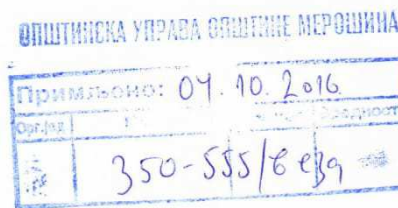 ОПШТИНСКА УПРАВА ОПШТИНЕ МЕРОШИНА
Примљено: 04. 10. 2016
Орг.јед
350-555/веза